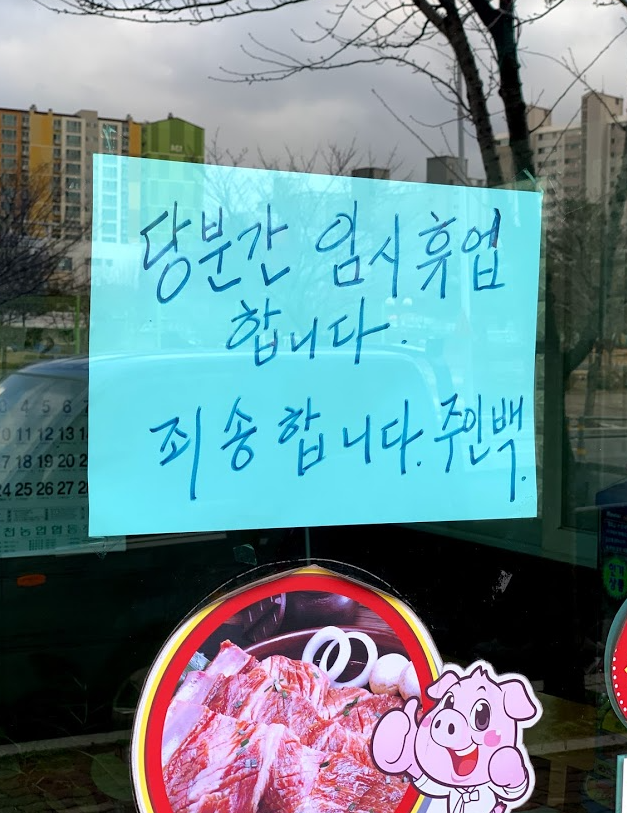 당분간 임시휴업
합니다.
죄송합니다. 주인백.
3 4 5 6
10 11 12 13
17 18 19 20
24 25 26 27